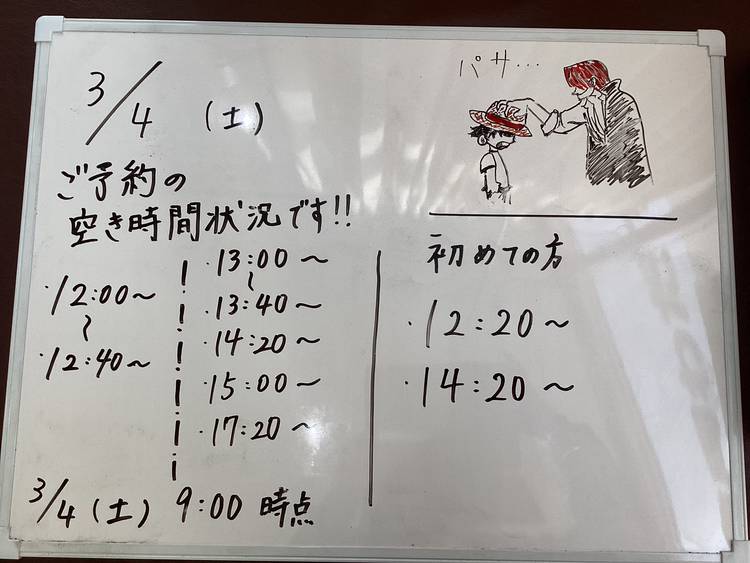 3/4 (土)
パサ...
ご予約の
空き時間状況です!!
・12:00~
~
・12:40~
・13:00~
~
・13:40~
・14:20~
・15:00~
・17:20~
初めての方
・12:20~
・14:20~
3/4(土) 9:00 時点